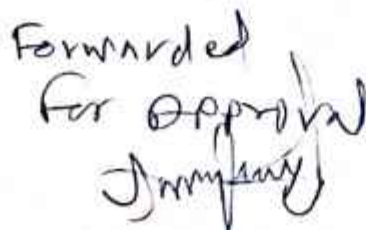 Forwarded
For Approval